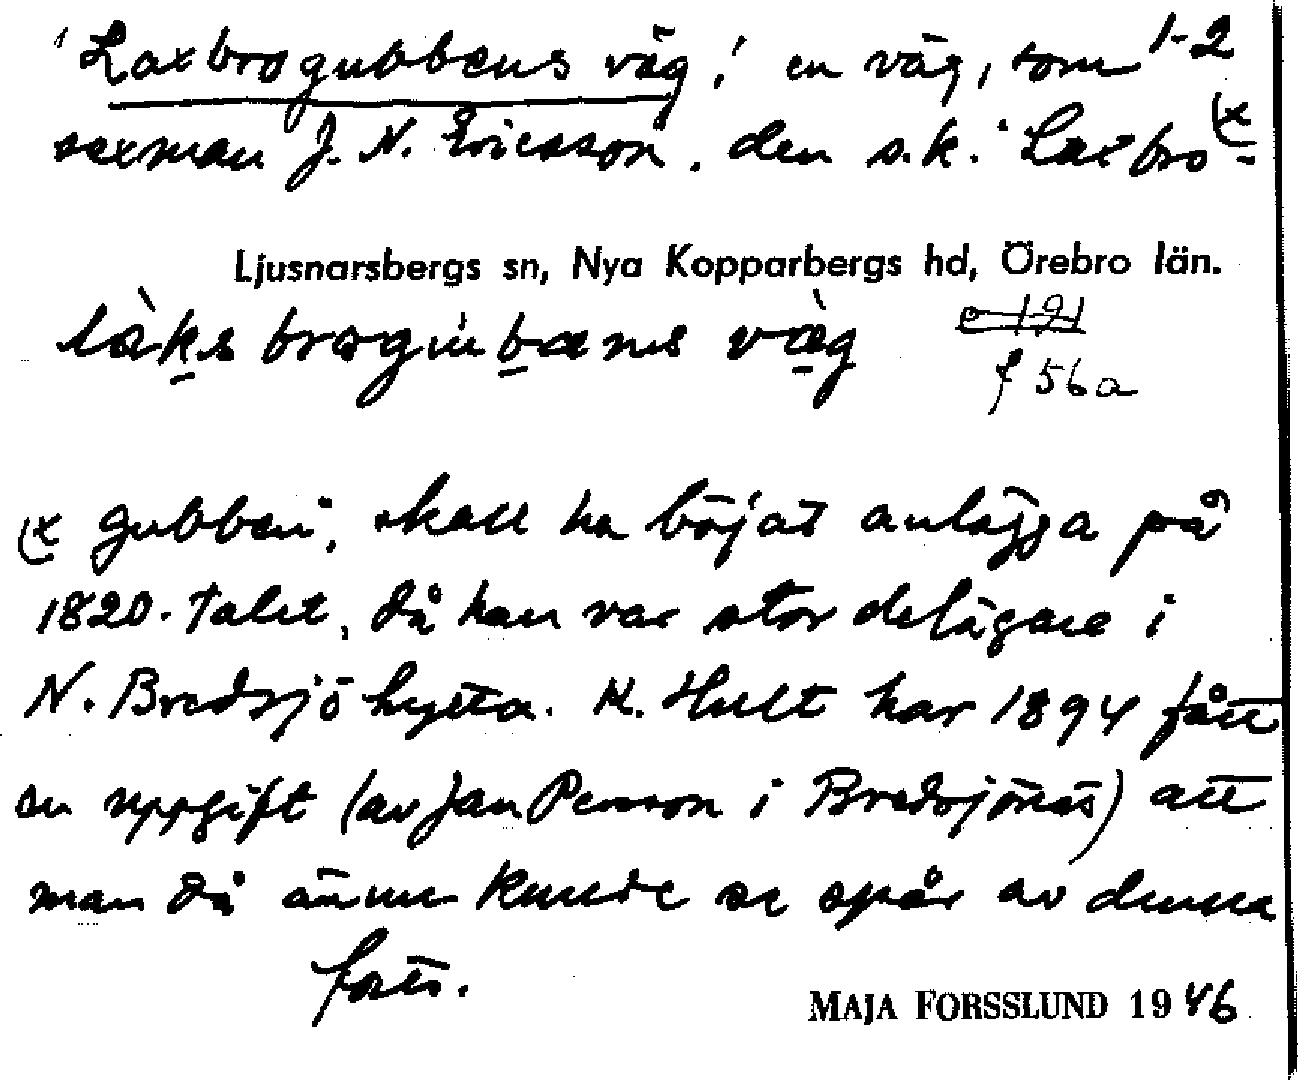 'Laxbrogubbens väg', en väg, som 1-2
sexman J. N. Ericsson, den s.k. "Laxbro- (x
Ljusnarsbergs sn, Nya Kopparbergs hd, Örebro län.
väg c 191
f 56a
(x gubben", skall ha börjat anlägga på
1820-talet, då han var stor delägare i
N. Bredsjöhytta. K. Hult har 1894 fått
en uppgift (av Jan Persson i Bredsjönäs) att
man då ännu kunde se spår av denna
forts.
MAJA FORSSLUND 1946